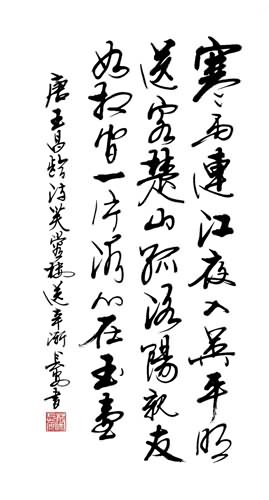 寒雨連江夜入吳平明
送客楚山孤洛陽親友
如相问一片冰心在玉壺
唐王昌齡詩芙蓉樓送辛漸書